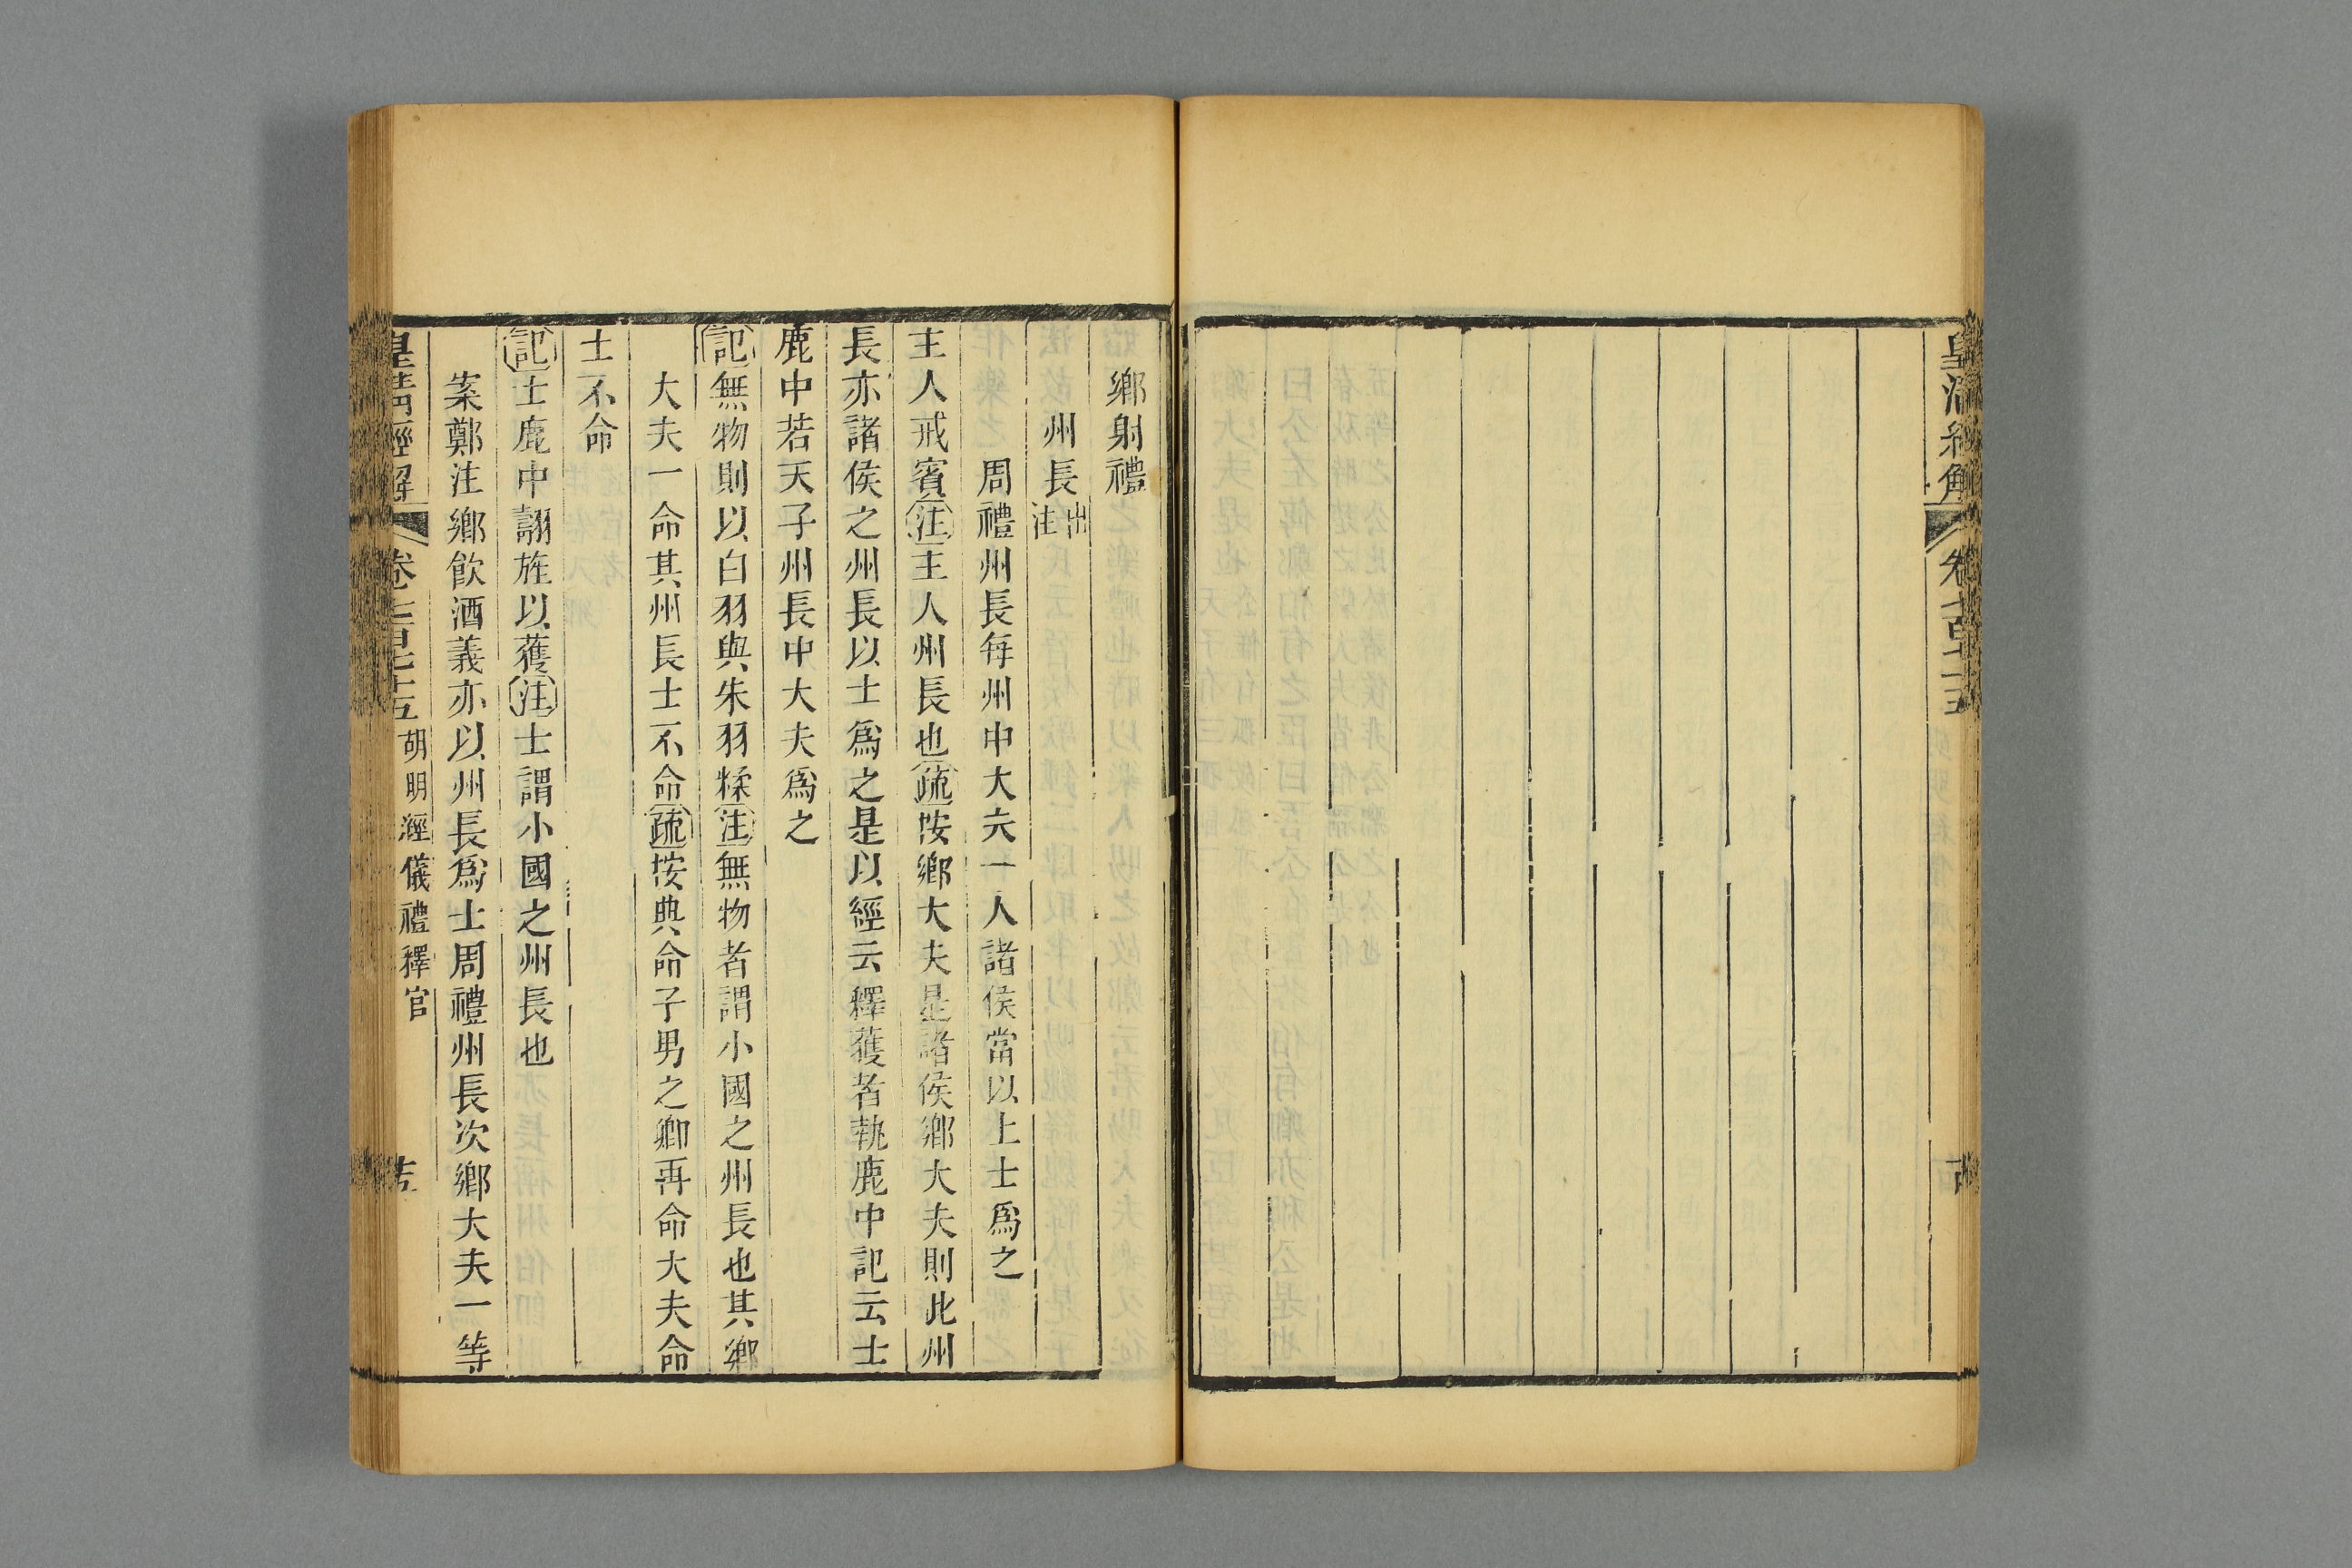 鄉射禮
州長出注
周禮州長每州中大夫一人諸侯當以上士爲之
主人戒賓注主人州長也疏按鄉大夫是諸侯鄉大夫則此州
長亦諸侯之州長以士爲之是以經云釋獲者執鹿中記云士
鹿中若天子州長中大夫爲之
記無物則以白羽與朱羽糅注無物者謂小國之州長也其鄉
大夫一命其州長士不命疏按典命子男之卿再命大夫一命
士不命
記士鹿中翿旌以獲注士謂小國之州長也
案鄭注鄉飲酒義亦以州長爲士周禮州長次鄉大夫一等
皇清經解 卷七百七十五 胡明經儀禮釋官